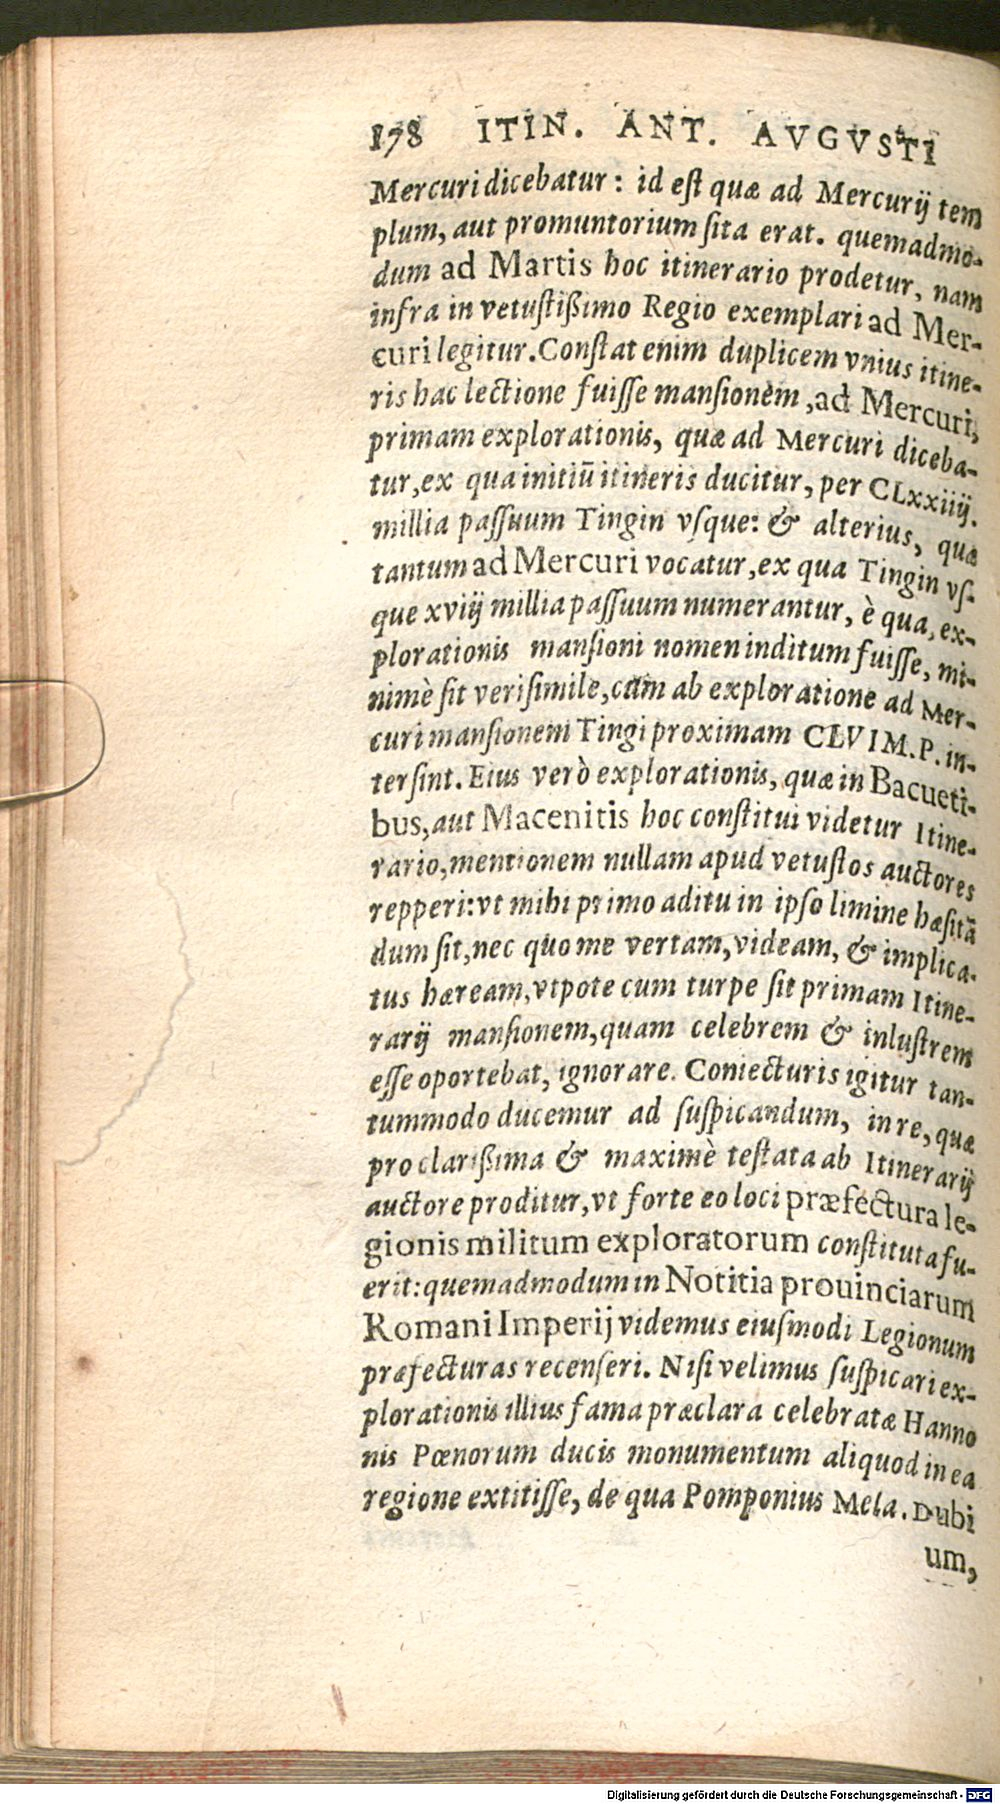 178 ITIN. ANT. AVGVSTI
Mercuri dicebatur: id eſt quæ ad Mercurij tem
plum, aut promuntorium ſita erat. quemadmo-
dum ad Martis hoc itinerario prodetur, nam
infra in vetuſtißimo Regio exemplari ad Mer-
curi legitur. Conſtat enim duplicem vnius itine-
ris hac lectione fuiſſe manſionem, ad Mercuri,
primam explorationis, quæ ad Mercuri diceba-
tur, ex qua initiū itineris ducitur, per CLxxiiij.
millia paſſuum Tingin vſque: & alterius, quæ
tantum ad Mercuri vocatur, ex qua Tingin vſ-
que xviij millia paſſuum numerantur, è qua, ex-
plorationis manſioni nomen inditum fuiſſe, mi-
nimè ſit veriſimile, cùm ab exploratione ad Mer-
curi manſionem Tingi proximam CLVI M.P. in-
terſint. Eius verò explorationis, quæ in Bacueti-
bus, aut Macenitis hoc conſtitui videtur Itine-
rario, mentionem nullam apud vetuſtos auctores
repperi: vt mihi primo aditu in ipſo limine hæſitā
dum ſit, nec quo me vertam, videam, & implica-
tus hæream, vtpote cum turpe ſit primam Itine-
rarij manſionem, quam celebrem & inluſtrem
eſſe oportebat, ignorare. Coniecturis igitur tan-
tummodo ducemur ad ſuſpicandum, in re, quæ
pro clarißima & maximè teſtata ab Itinerarij
auctore proditur, vt forte eo loci præfectura le-
gionis militum exploratorum conſtituta fu-
erit: quemadmodum in Notitia prouinciarum
Romani Imperij videmus eiuſmodi Legionum
præfecturas recenſeri. Niſi velimus ſuſpicari ex-
plorationis illius fama præclara celebratæ Hanno
nis Pœnorum ducis monumentum aliquod in ea
regione extitiſſe, de qua Pomponius Mela. Dubi
um,
Digitalisierung gefördert durch die Deutsche Forschungsgemeinschaft - DFG